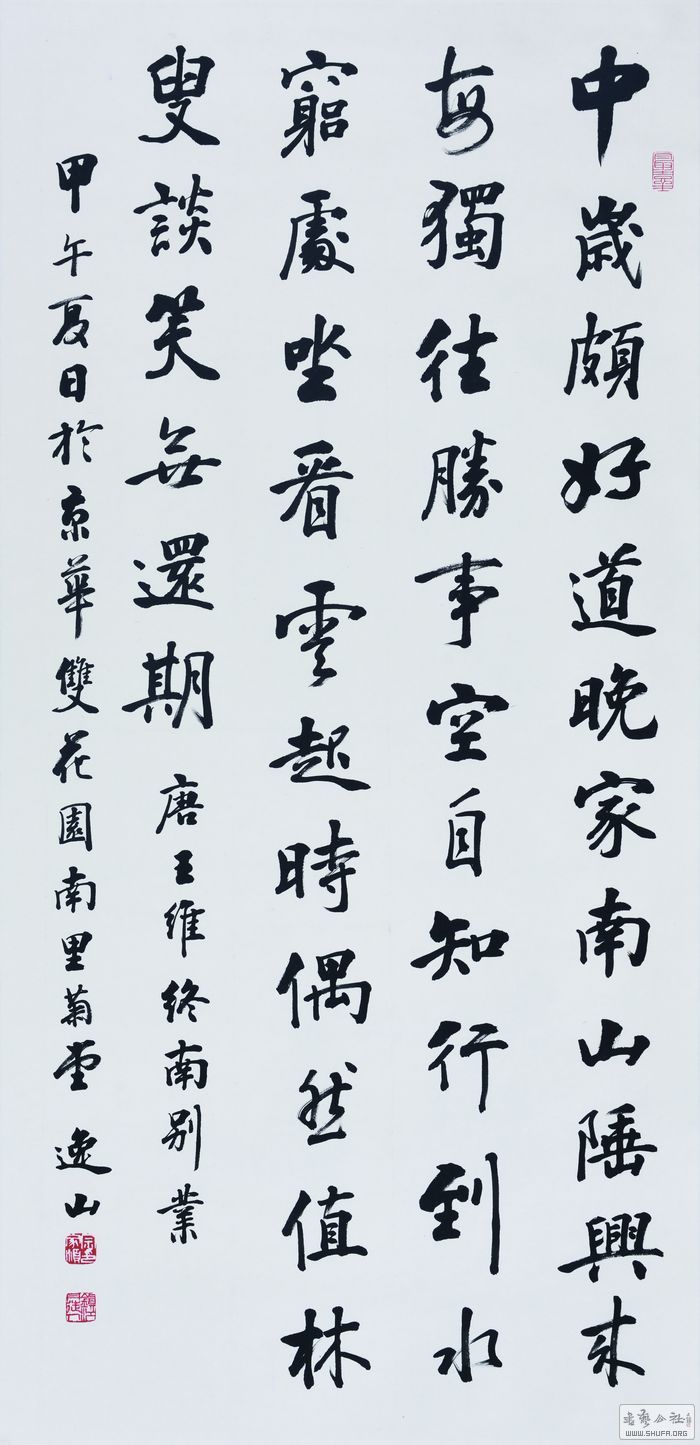 中歲頗好道晚家南山陲興來
每獨往勝事空自知行到水
窮處坐看雲起時偶然值林
叟談笑無還期
唐王維終南別業
甲午夏日於京華雙花園南里菊堂逸山
書藝公社
WWW.SHUFA.ORG